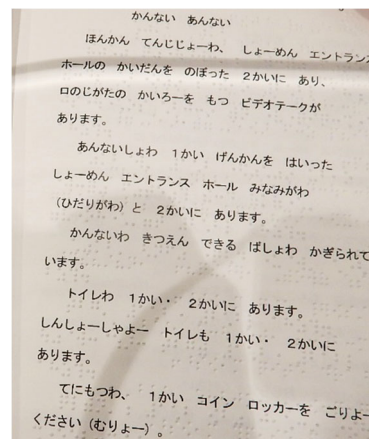 かんない　あんない
ほんかん　てんじじょーわ、　しょーめん　エントランス
ホールの　かいだんを　のぼった　２かいに　あり、
ロのじがたの　かいろーを　もつ　ビデオテークが
あります。
あんないしょわ　１かい　げんかんを　はいった
しょーめん　エントランス　ホール　みなみがわ
（ひだりがわ）と　２かいに　あります。
かんないわ　きつえん　できる　ばしょわ　かぎられて
います。
トイレわ　１かい・　２かいに　あります。
しんしょーしゃよー　トイレも　１かい・　２かいに
あります。
てにもつわ、　１かい　コイン　ロッカーを　ごりよー
ください（むりょー）。